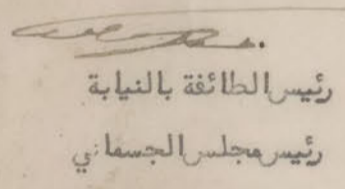 رئيس الطائفة بالنيابة
رئيس مجلس الجسماني